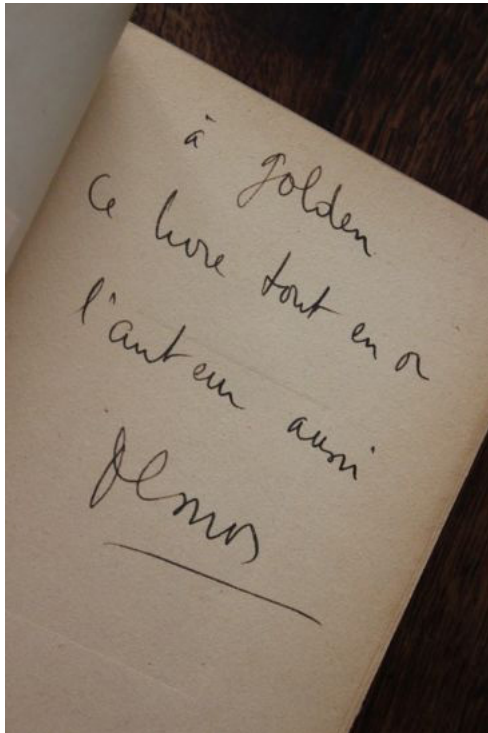 à golden
Ce livre tout en or
l'auteur aussi
Desnos